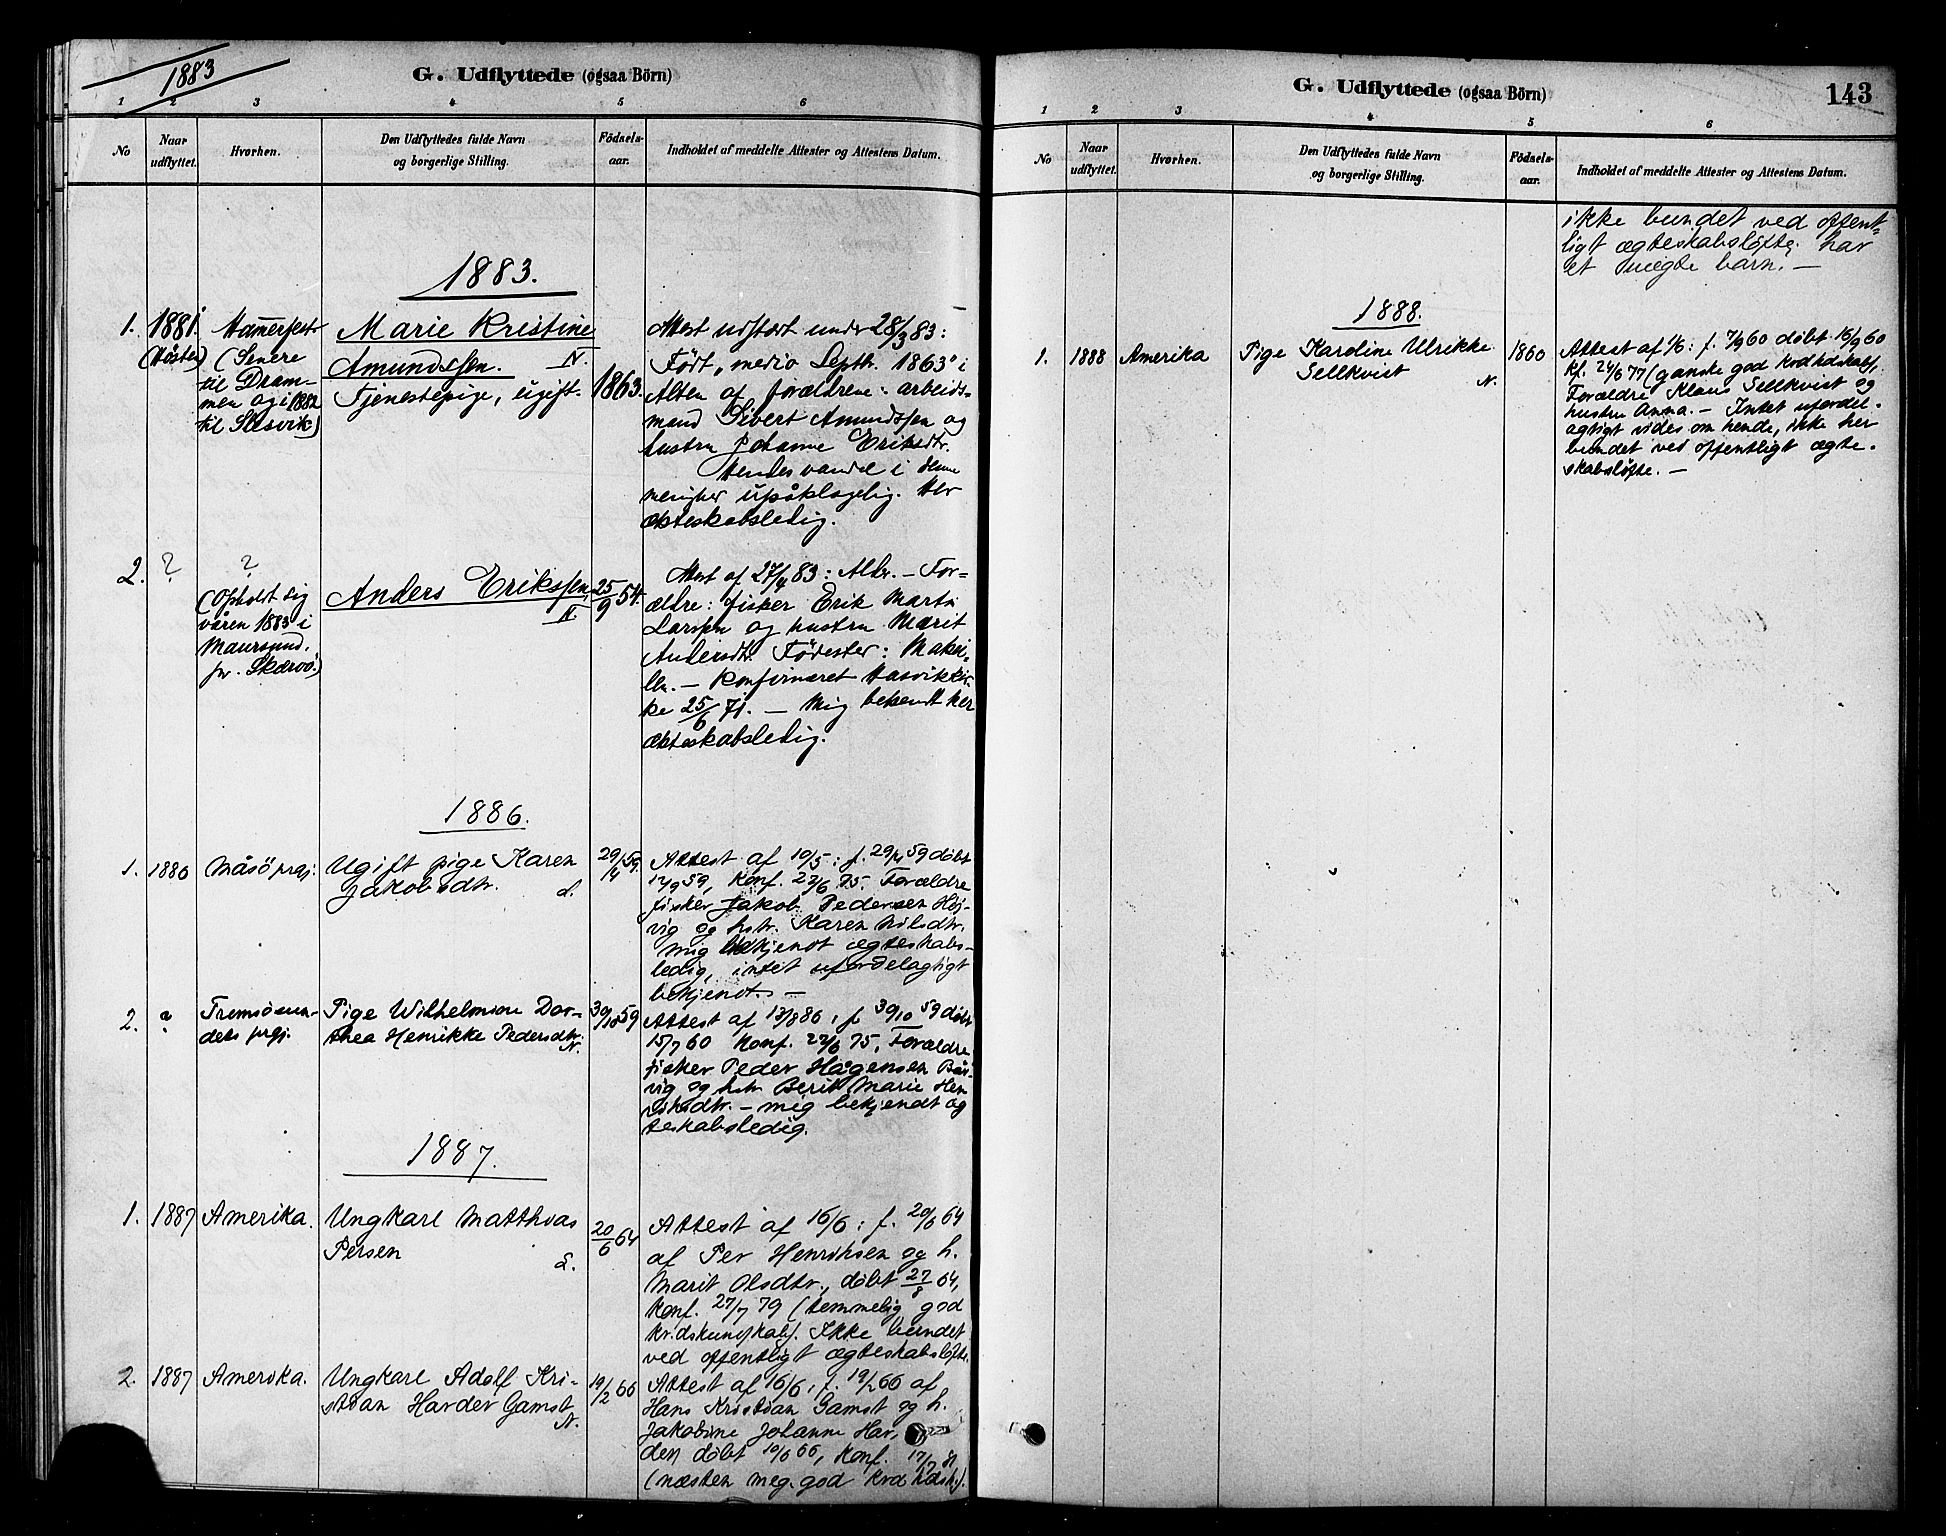 1883
G. Udflyttede (ogsaa Börn)
1 2 3 4 5 6
No
Naar udflyttet.
Hvorhen.
Den Udflyttedes fulde Navn og borgerlige Stilling.
Födsels-aar.
Indholdet af meddelte Attester og Attestens Datum.
1883.
1.
1881.
(Høsten)
Hamerfest
(Senere
til Dram-
men og i 1882
til Slesvik)
Marie Kristine
Amundssen. N.
Tjenestepige, ugift.
1863.
Attest udstædt under 28/3 83:
Født "medio Septbr. 1863" i
Alten af forældrene: arbeids-
mand Sivert Amundssen og
hustru Johanne Eriksdtr.
Hendes vandel i denne
menighed upåklagelig. Her
ekteskabsledig.
2.
?
?
(Opholdt sig
våren 1883 i
Maursund,
pr. Skærvø.)
Anders Erikssen,
N.
25/9 54.
Attest af 27/4 83: Alder. - For-
ældre: fisker Erik Martin
Larssen og hustru Marit
Andersdtr. Fødested:
- Konfirmeret Hasvik kir-
ke 25/6 71. - Mig bekendt her
ekteskabsledig.
1886.
1.
1886
Måsö prgj.
Ugift pige Karen
Jakobsdtr. L.
29/4 59.
Attest af 10/5: f. 29/4 59 døbt
17/9 59, konf. 27/6 75. Forældre
fisker Jakob Pedersen Høj-
vig og hstr. Karen Nilsdtr.
mig bekjendt ægteskabs-
ledig, intet ufordelagtigt
bekjendt. -
2.
?
Tromsösun-
dets prgj.
Pige Wilhelmine Dor-
thea Henrikke Pedersdtr.
N.
30/10 59
Attest af 13/8 86: f. 30/10 59 døbt
15/7 60 Konf. 27/6 75, Forældre
fisker Peder Hågensen Bår-
vig og hstr. Berit Marie Hen
riksdtr. - mig bekjendt æg
teskabsledig.
1887.
1.
1887
Amerika.
Ungkarl Matthias
Persen
L.
20/6 64
Attest af 16/6: f. 20/6 64
af Per Henriksen og h.
Marit Olsdtr., døbt 27/8 64,
konf. 27/7 79 (temmelig god
kr.dskundskab). Ikke bundet
ved offentligt ægteskabsløfte.
2.
1887
Amerika.
Ungkarl Adolf Kri-
stian Harder Gamst
N.
19/2 66
Attest af 16/6, f. 19/2 66 af
Hans Kristian Gamst og h.
Jakobine Johanne Har-
der, døbt 10/6 66, konf. 17/7 81
(næsten meg. god krd.kdsk.).
G. Udflyttede (ogsaa Börn)
143
1 2 3 4 5 6
No
Naar udflyttet.
Hvorhen.
Den Udflyttedes fulde Navn og borgerlige Stilling.
Födsels-aar.
Indholdet af meddelte Attester og Attestens Datum.
ikke bundet ved offent-
ligt ægteskabsløfte. har
et uægte barn. -
1888.
1.
1888
Amerika
Pige Kardine Ulrikke
Sellkvist
N.
1860
Attest af 1/6: f. 7/9 60 døbt 16/9 60
kf. 24/6 77 (ganske god krdkdskab),
Forældre Klaus Sellkvist og
hustru Anna. - Intet ufordel-
agtigt vides om hende, ikke her
bundet ved offentligt ægte-
skabsløfte. -